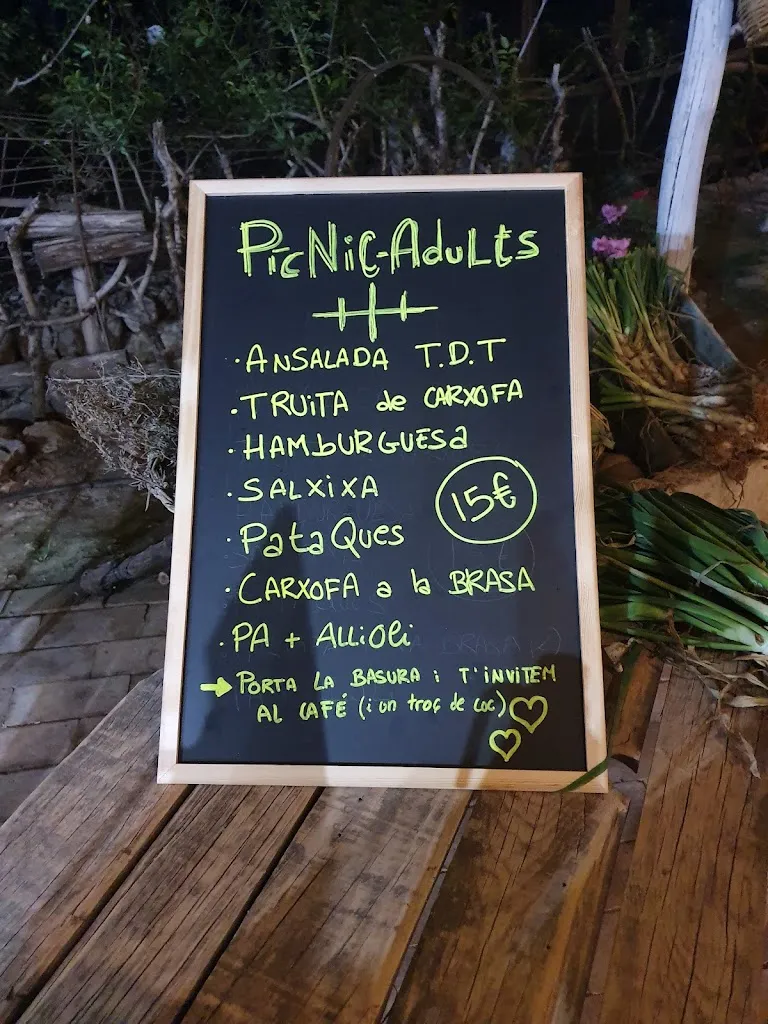 PicNic-Adults
· ANSALADA T.D.T
· TRUITA de CARXOFA
· HAMbURGUESa
· SALXIXA
15€
· PataQues
· CARXOFA a la BRASA
· PA + ALLiOli
→ PORTA LA BASURA i T'iNVITEM
AL CAFÉ (i un troç de coc)